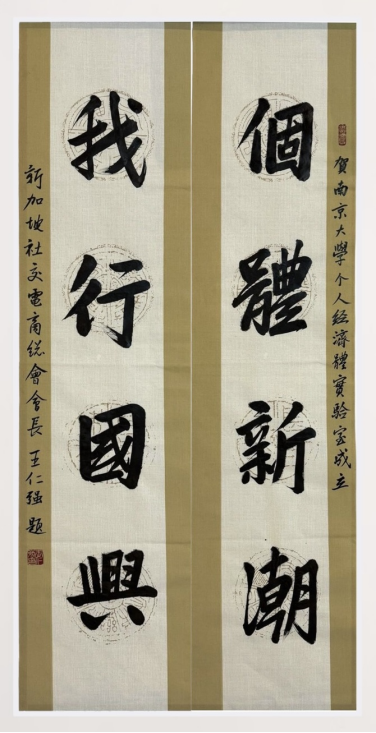 賀南京大學个人经濟體實驗室成立
個體新潮
我行國興
新加坡社交電商総會會長 王仁强 題